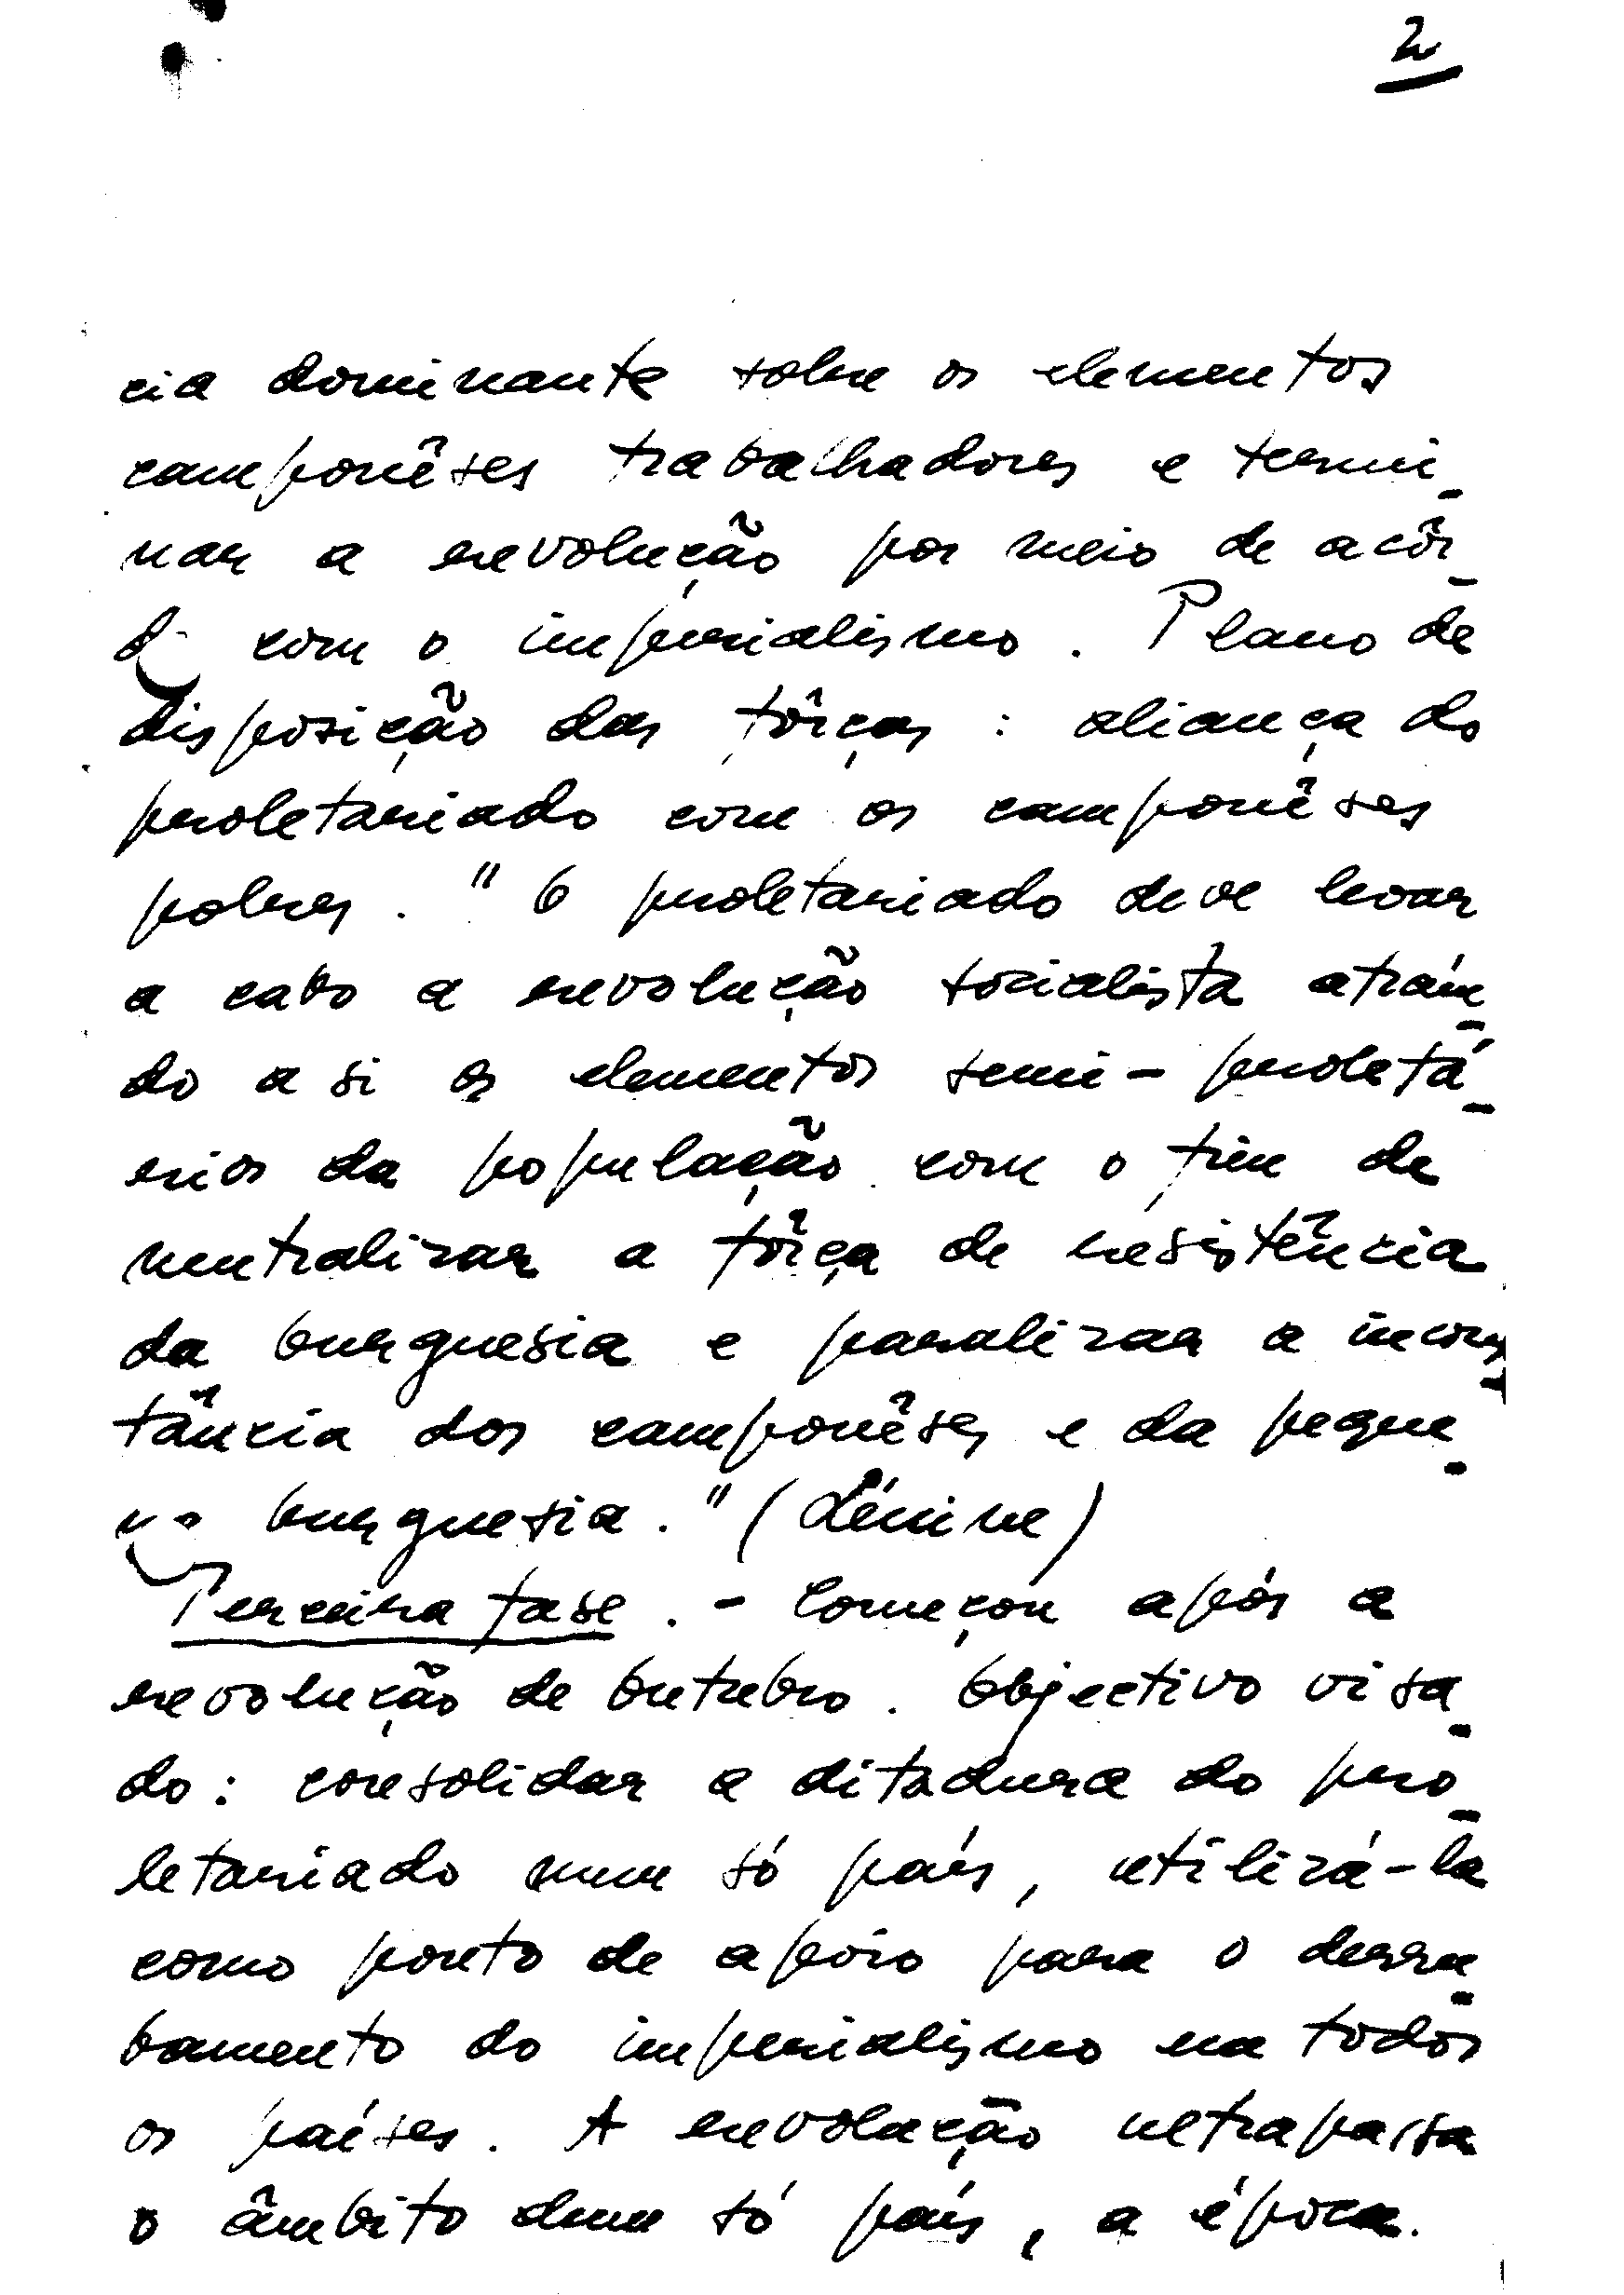 2
cia dominante sobre os elementos
camponêses trabalhadores e termi-
nar a revolução por meio de acôr-
do com o imperialismo. Plano de
disposição das fôrças: aliança do
proletariado com os camponêses
pobres. "O proletariado deve levar
a cabo a revolução socialista atrain-
do a si os elementos semi-proletá-
rios da população com o fim de
neutralizar a fôrça de resistência
da burguesia e paralizar a incons-
tância dos camponêses e da peque-
na burguesia." (Lénine)
Terceira fase. - Começou após a
revolução de Outubro. Objectivo visa-
do: consolidar a ditadura do pro-
letariado num só país, utilizá-la
como ponto de apoio para o derru-
bamento do imperialismo em todos
os países. A revolução ultrapassa
o âmbito dum só país, a época.